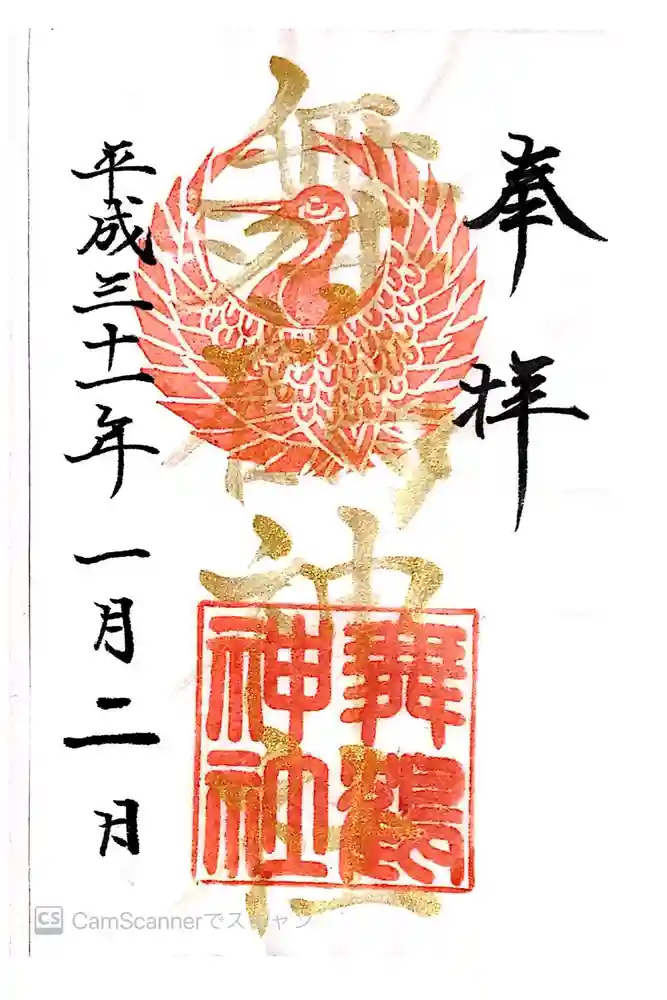 奉拝
舞鶴神社
舞鶴
神社
平成三十一年 一月二日
CS CamScannerでスキャン